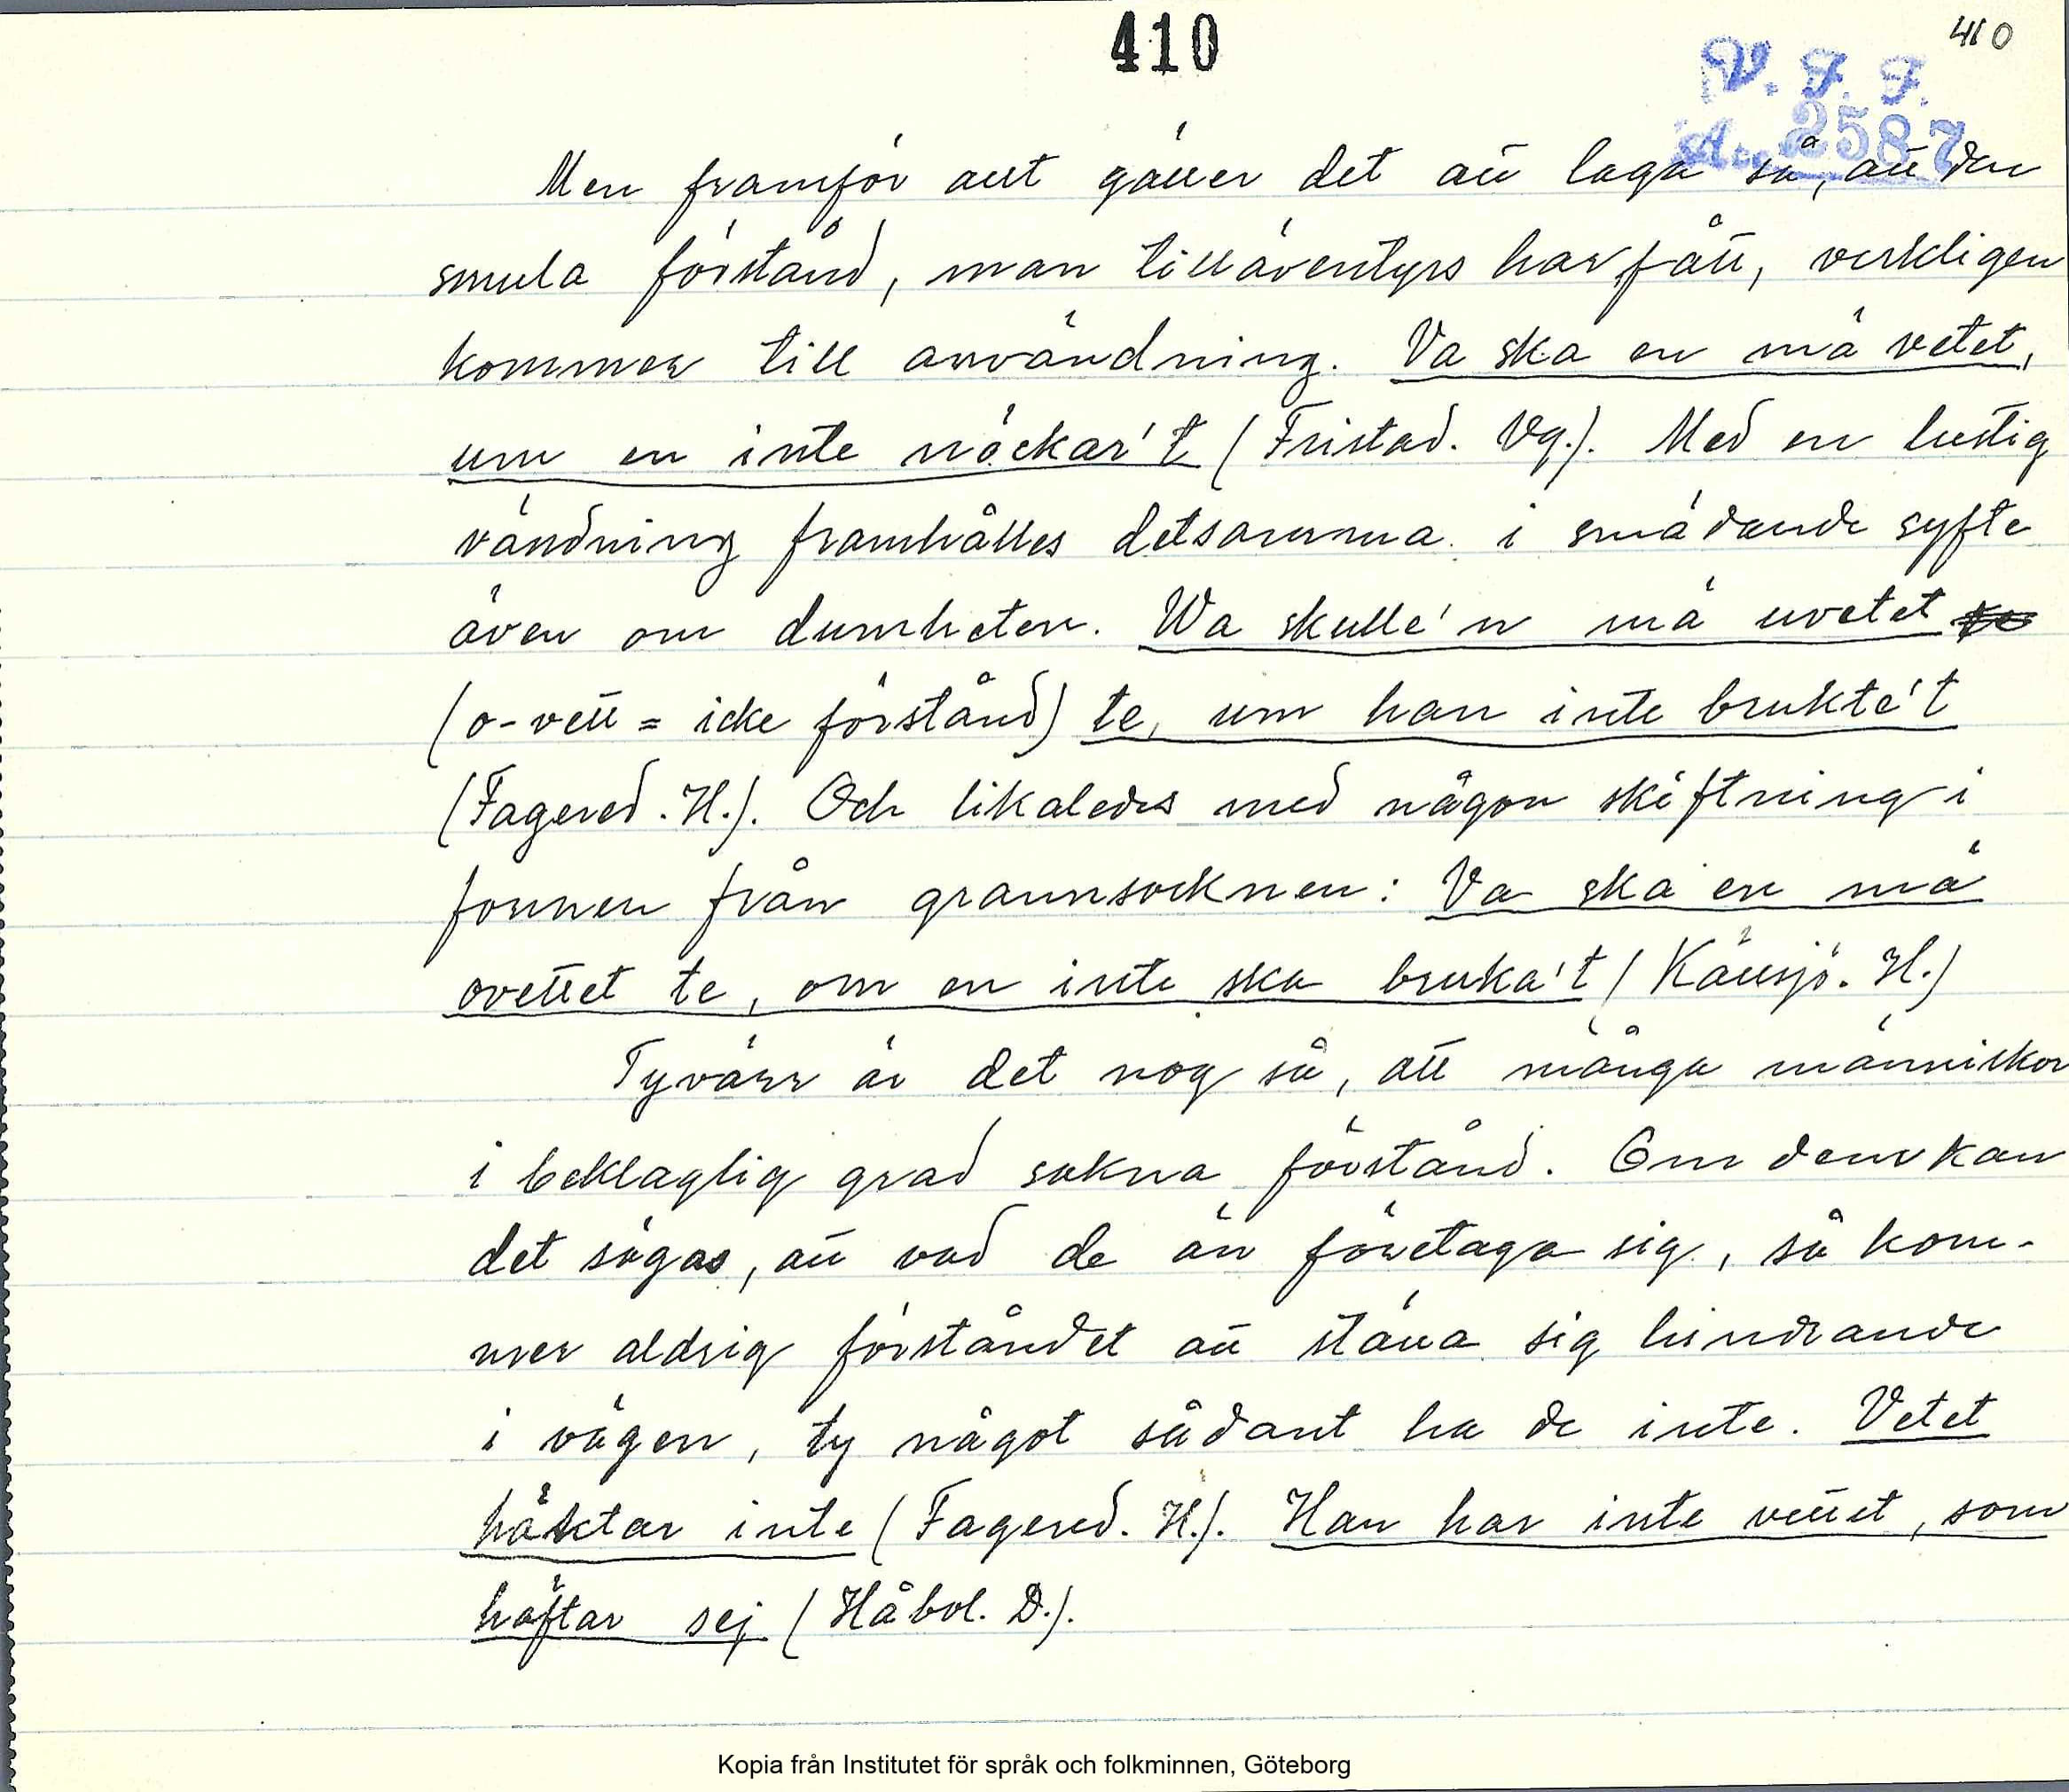 410
410
V. F. F.
Acc. 2587
Men framför allt gäller det att laga så, att den
smula förstånd, man tilläventyrs har fått, verkligen
kommer till användning. Va ska en mä vetet,
um en inte nöckar't (Fristad. Vg.). Med en lustig
vändning framhålles detsamma i smädande syfte
även om dumheten. Wa skulle'n mä uvetet
(o-vett = icke förstånd) te, um han inte brukte't
(Fagered. H.). Och likaledes med någon skiftning i
formen från grannsocknen: Va ska en mä
ovettet te, om en inte ska bruka't (Källsjö. H.)
Tyvärr är det nog så, att många människor
i beklaglig grad sakna förstånd. Om dem kan
det sägas, att vad de än företaga sig, så kom-
mer aldrig förståndet att ställa sig hindrande
i vägen, ty något sådant ha de inte. Vetet
häktar inte (Fagered. H.). Han har inte vettet, som
häftar sej (Håbol. D.).
Kopia från Institutet för språk och folkminnen, Göteborg